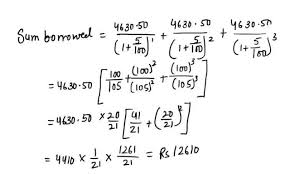 Sum borrowed = 4630.50/(1+5/100)^1 + 4630.50/(1+5/100)^2 + 4630.50/(1+5/100)^3
= 4630.50 [100/105 + (100)^2/(105)^2 + (100)^3/(105)^3]
= 4630.50 × 20/21 [41/21 + (20/21)^2]
= 4410 × 1/21 × 1261/21 = Rs 12610